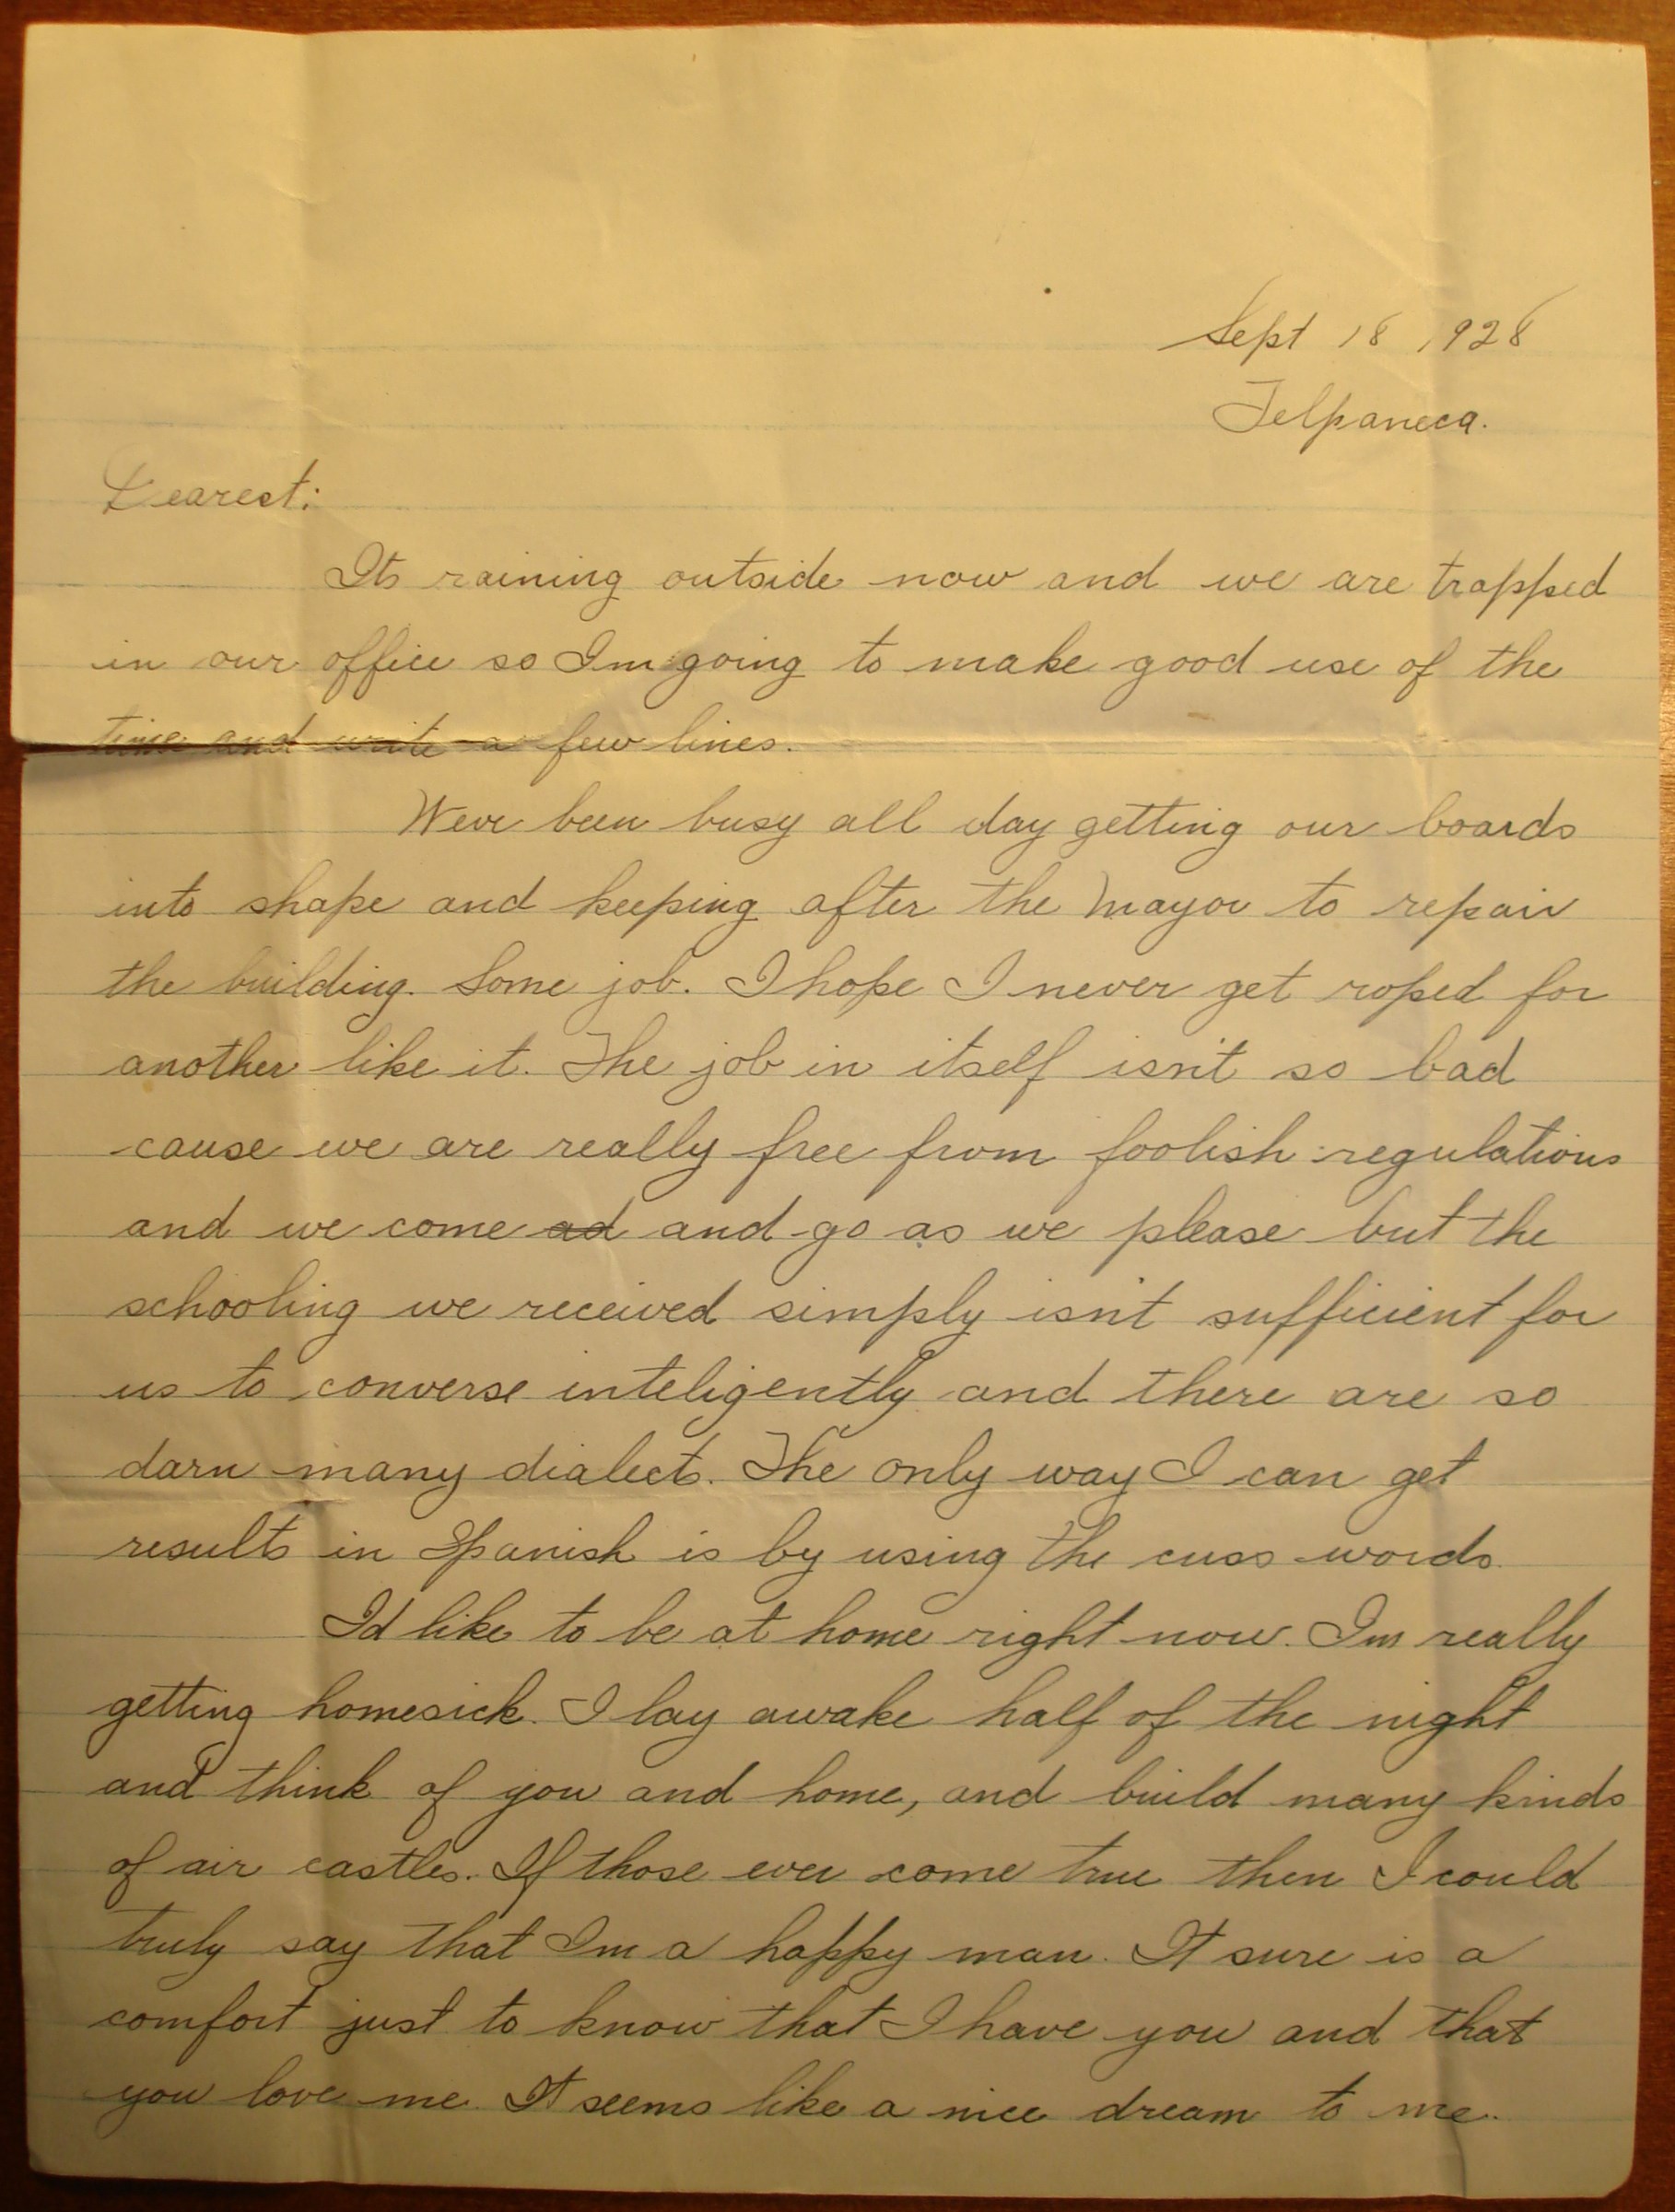 Sept 18, 1928
Telpaneca.
Dearest:
Its raining outside now and we are trapped
in our office so Im going to make good use of the
time and write a few lines.
Weve been busy all day getting our boards
into shape and keeping after the Mayor to repair
the building. Some job. I hope I never get roped for
another like it. The job in itself isn't so bad
cause we are really free from foolish regulations
and we come ad and go as we please but the
schooling we received simply isn't sufficient for
us to converse inteligently and there are so
darn many dialects. The only way I can get
results in Spanish is by using the cuss words.
I'd like to be at home right now. Im really
getting homesick. I lay awake half of the night
and think of you and home, and build many kinds
of air castles. If those ever come true then I could
truly say that Im a happy man. It sure is a
comfort just to know that I have you and that
you love me. It seems like a nice dream to me.